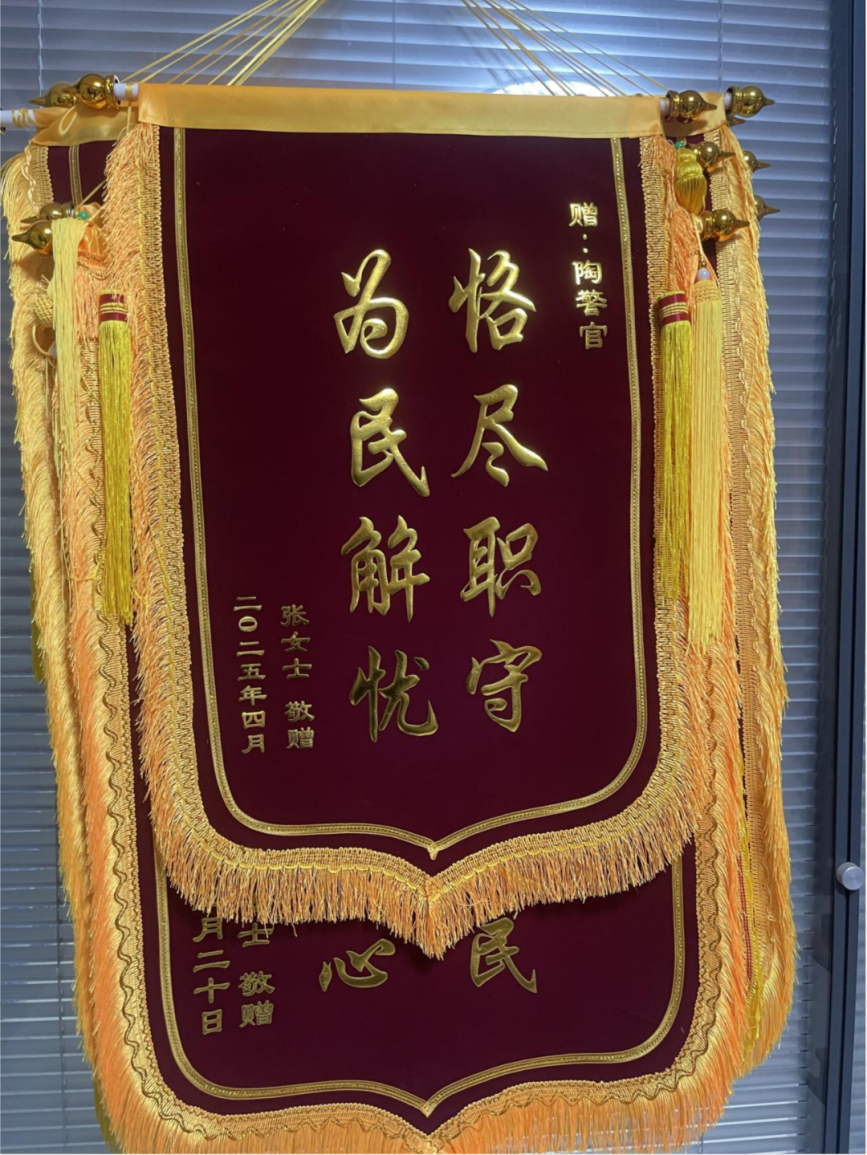 赠：陶警官
恪尽职守
为民解忧
张女士 敬赠
二〇二五年四月
民
心
士 敬赠
月二十日